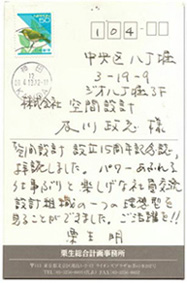 104-
中央区八丁堀
3-19-9
ジオ八丁堀3F
株式会社 空間設計
及川 政志 様
「空間設計 設立15周年記念誌」
拝読しました。パワーあふれる
お仕事ぶりと楽しげな社風充満
設計組織の一つの理想型を
見ることができました。ご活躍を!!
栗生 明
栗生総合計画事務所